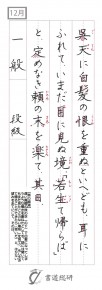 12月
呉天に白髪の恨を重ぬといへども、耳に
ふれて、いまだ目に見ぬ境、若生て帰らば
と定めなき頼の末を楽て、其日
一般
段級
書道総研